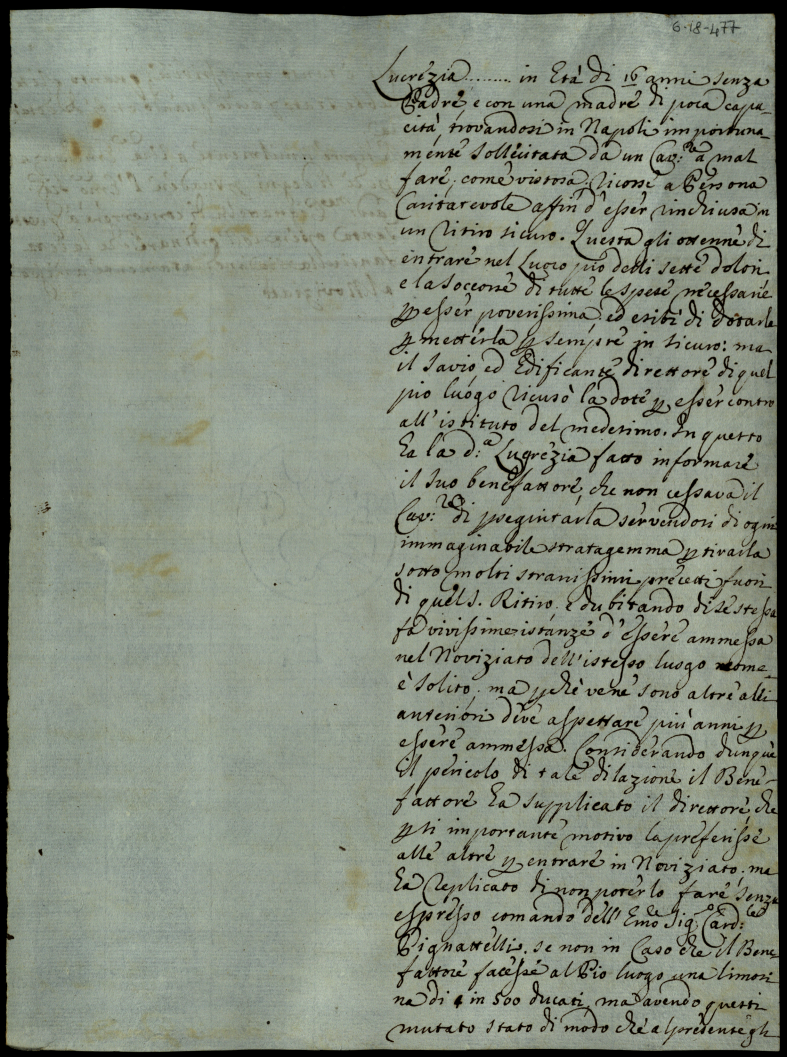 6-18-477
Lucrezia......... in Età di 16 anni senza
Padre, e con una madre di poca capa-
cità, trovandosi in Napoli importuna-
mente sollecitata da un Cav:re a mal
fare, come vistosa, ricorse a Persona
Caritatevole affin d'esser rinchiusa in
un ritiro sicuro. Questa gli ottenne di
entrare nel Luogo pio delli sette dolori
e la soccorse di tutte le spese necessarie
p esser poverissima, ed esibì di dotarla
p metterla p sempre in sicuro: ma
il savio, ed Edificante direttore di quel
pio luogo ricusò la dote p esser contro
all'istituto del medesimo. In questo
ha la d:a Lugrezia fatto informare
il suo benefattore, che non cessava il
Cav:re di pseguitarla servendosi di ogni
immaginabile stratagemma p tirarla
sotto molti stranissimi precetti fuori
di quel S. Ritiro. E dubitando di se stessa
fa vivissime istanze d'essere ammessa
nel Noviziato dell'istesso luogo come
è solito, ma pchè ve ne sono altre alli
anteriori deve aspettare più anni p
essere ammessa. Considerando dunque
il pericolo di tale dilazione il Bene-
fattore ha supplicato il direttore, che
p sì importante motivo la preferisse
alle altre p entrare in Noviziato, ma
ha replicato di non poterlo fare senza
espresso comando dell'Emo Sig. Card:le
Pignattelli, se non in Caso che il Bene-
fattore facesse al Pio luogo una limosi
na di in 500 ducati, ma avendo questi
mutato stato di modo che al presente gli